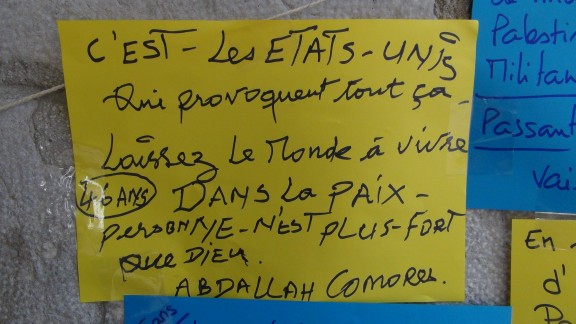 C'EST-Les ETATS-UNIS
Qui provoquent tout ça-
Laissez Le Monde à vivre
46 ANS DANS La PAIX-
PERSONNE-N'EST PLUS-FORT
que DIEU.
ABDALLAH COMORES.
Palestin
Militan
Passant
vai
En-
d'
sans